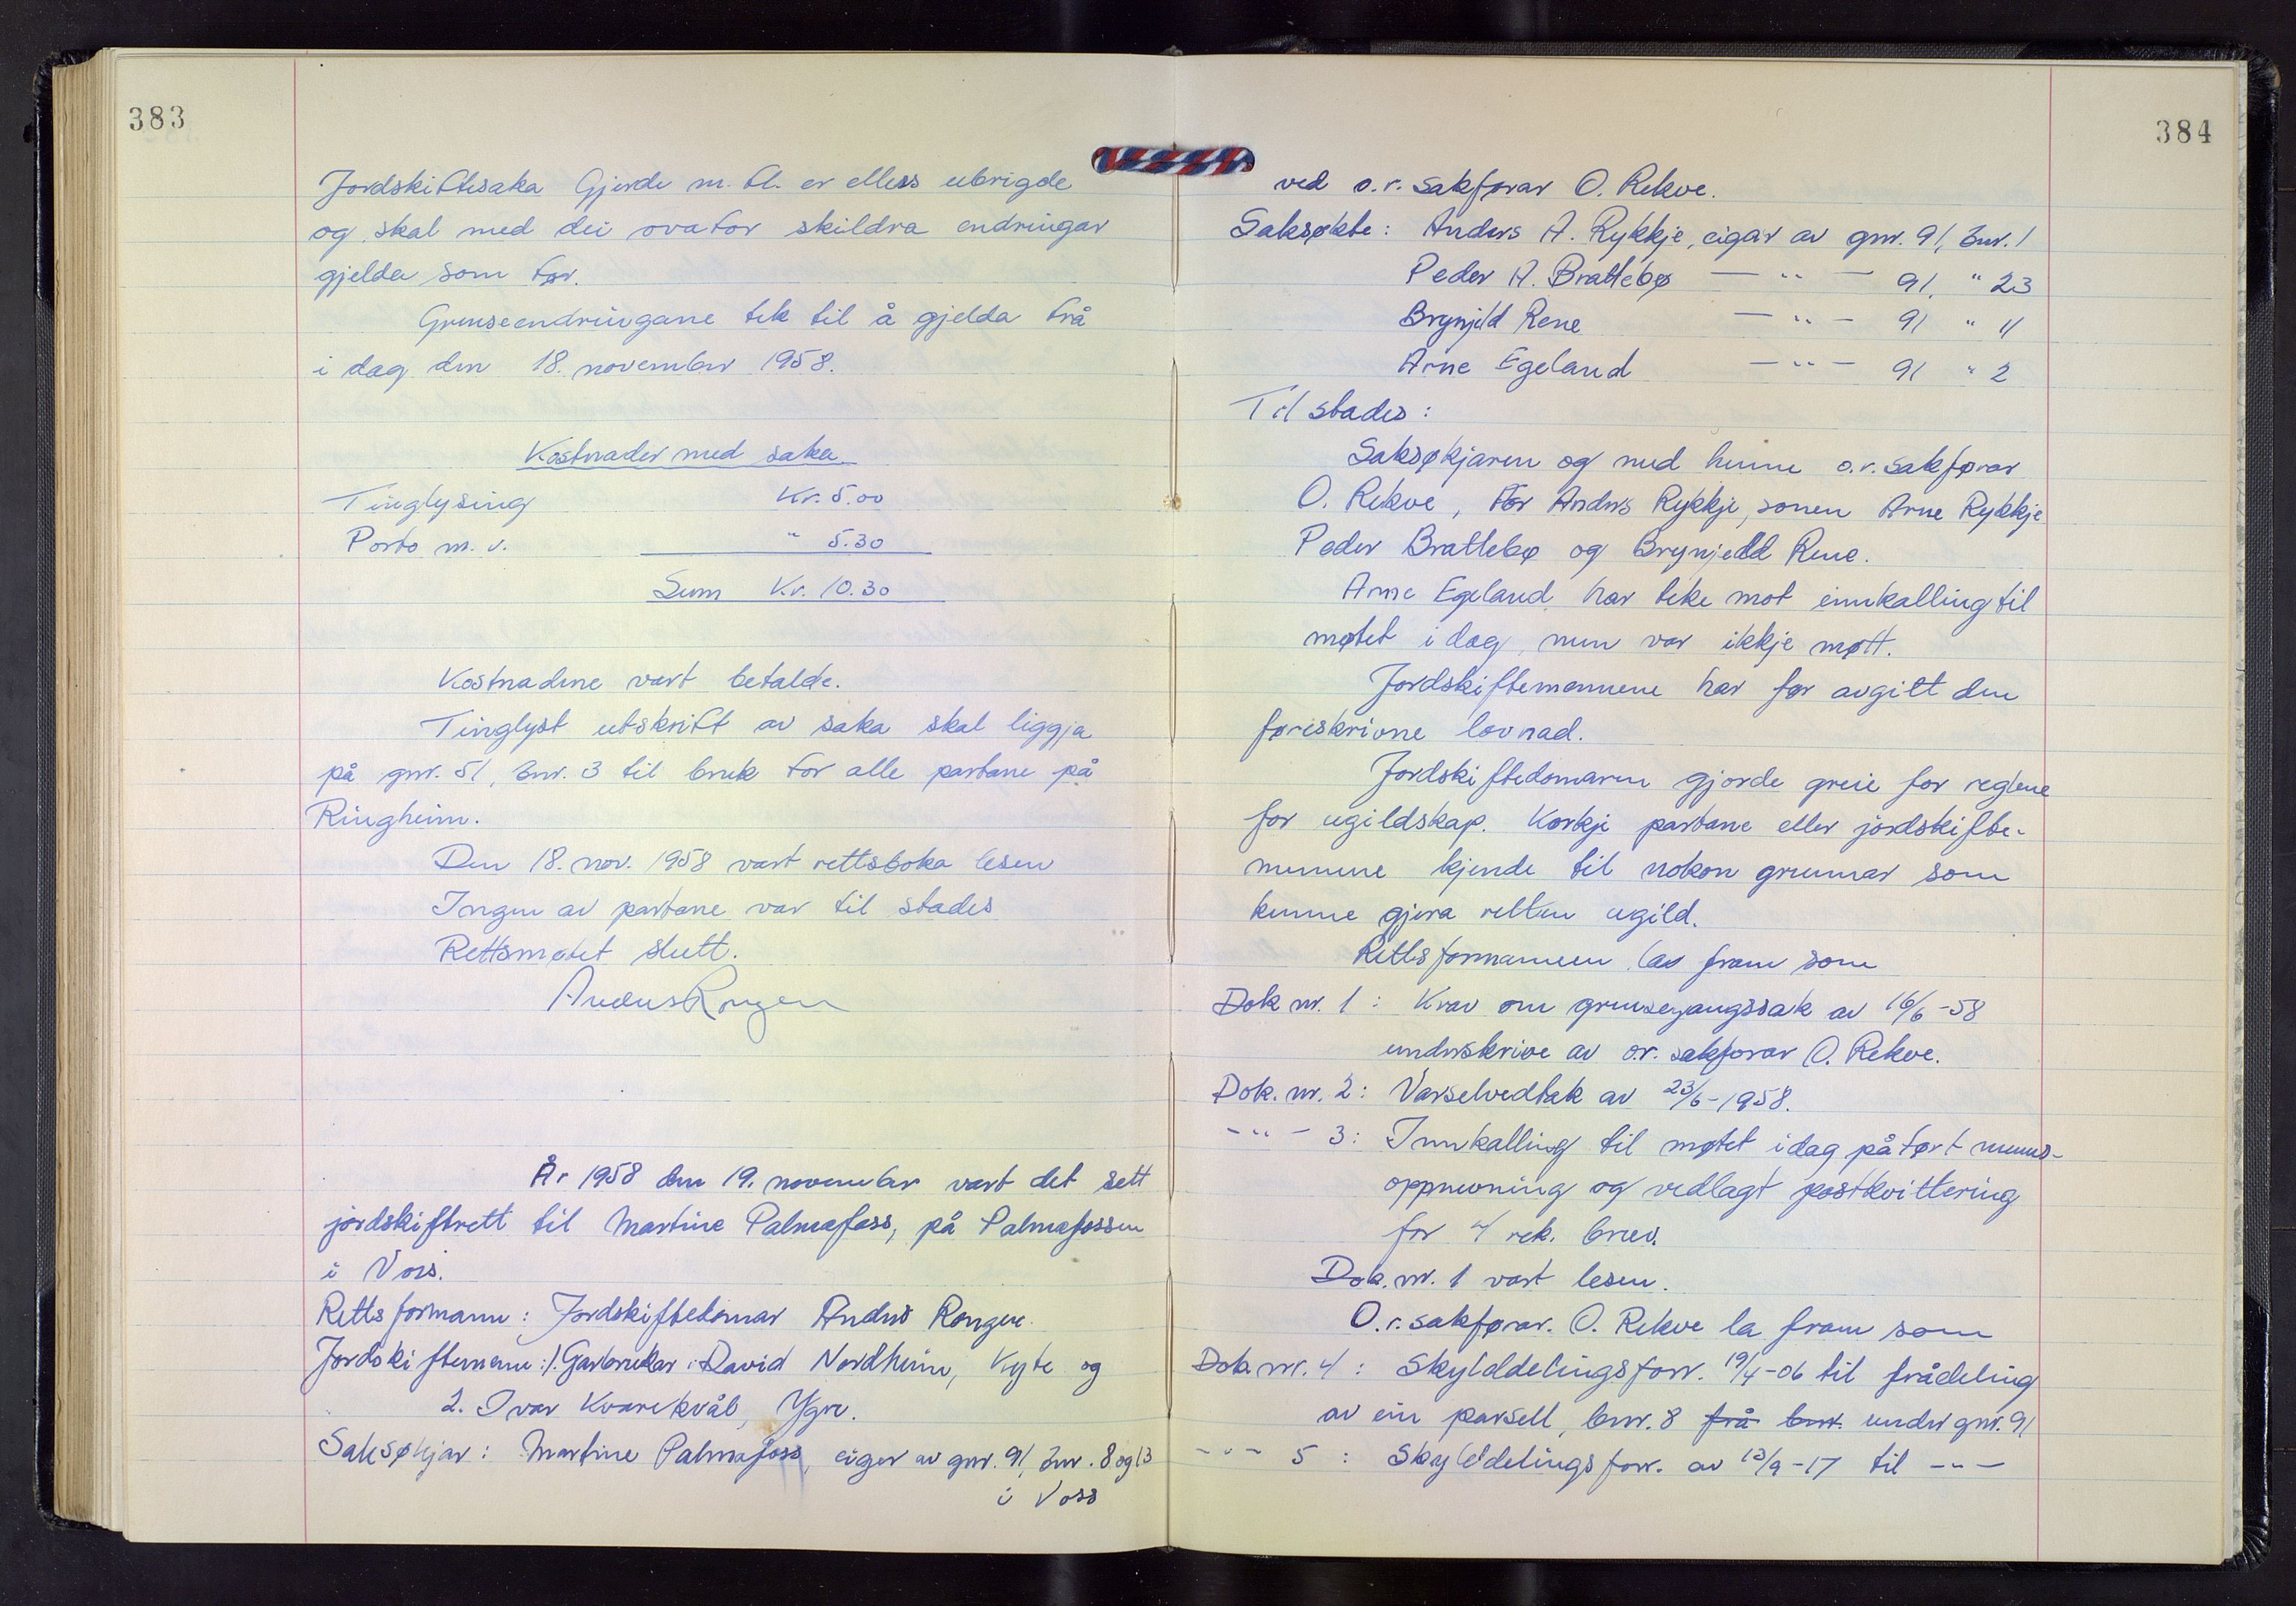 383
Jordskiftesaka Gjerde m. fl. er elles ubrigde
og skal med dei ovafor skildra endringar
gjelda som før.
Grenseendringane tek til å gjelda frå
i dag den 18. november 1958.
Kostnader med saka
Tinglysing Kr. 5.00
Porto m. v. " 5.30
Sum Kr. 10.30
Kostnadene vart betalde.
Tinglyst utskrift av saka skal liggja
på gnr. 51, bnr. 3 til bruk for alle partane på
Ringheim.
Den 18. nov. 1958 vart rettsboka lesen
Ingen av partane var til stades
Rettsmøtet slutt.
Anders Rongen
År 1958 den 19. november vart det sett
jordskifterett til Martine Palmafoss, på Palmafossen
i Voss.
Rettsformann: Jordskiftedomar Anders Rongen.
Jordskiftemenn: 1. Gardbrukar David Nordheim, Kyte og
2. Ivar Kvarekvål, Ygre.
Saksøkjar: Martine Palmafoss, eigar av gnr. 91, bnr. 8 og 13
i Voss
384
ved o.r. sakførar O. Rekve.
Saksøkte: Anders A. Rykkje, eigar av gnr. 91, bnr. 1
Peder A. Brattebø — " — 91, " 23
Brynjeld Rene — " — 91 " 4
Arne Egeland — " — 91 " 2
Til stades:
Saksøkjaren og med henne o.r. sakførar
O. Rekve, for Anders Rykkje, sonen Arne Rykkje
Peder Brattebø og Brynjeld Rene.
Arne Egeland har teke mot innkalling til
møtet i dag, men var ikkje møtt.
Jordskiftemennene har før avgitt den
føreskrivne lovnad.
Jordskiftedomaren gjorde greie for reglene
for ugildskap. Korkje partane eller jordskifte-
mennene kjende til nokon grunnar som
kunne gjera retten ugild.
Rettsformannen la fram som
Dok nr. 1: Krav om grensegangssak av 16/6-58
underskrive av o.r. sakførar O. Rekve.
Dok. nr. 2: Varselvedtak av 23/6-1958.
- " - 3: Innkalling til møtet i dag påført menns-
oppnevning og vedlagt postkvittering
for 4 rek. brev.
Dok. nr. 1 vart lesen.
O.r. sakførar. O. Rekve la fram som
Dok. nr. 4: Skylddelingsforr. 19/4-06 til frådeling
av ein parsell, bnr. 8 frå bnr. under gnr. 91
- " - 5: Skylddelingsforr. av 13/9-17 til - " -